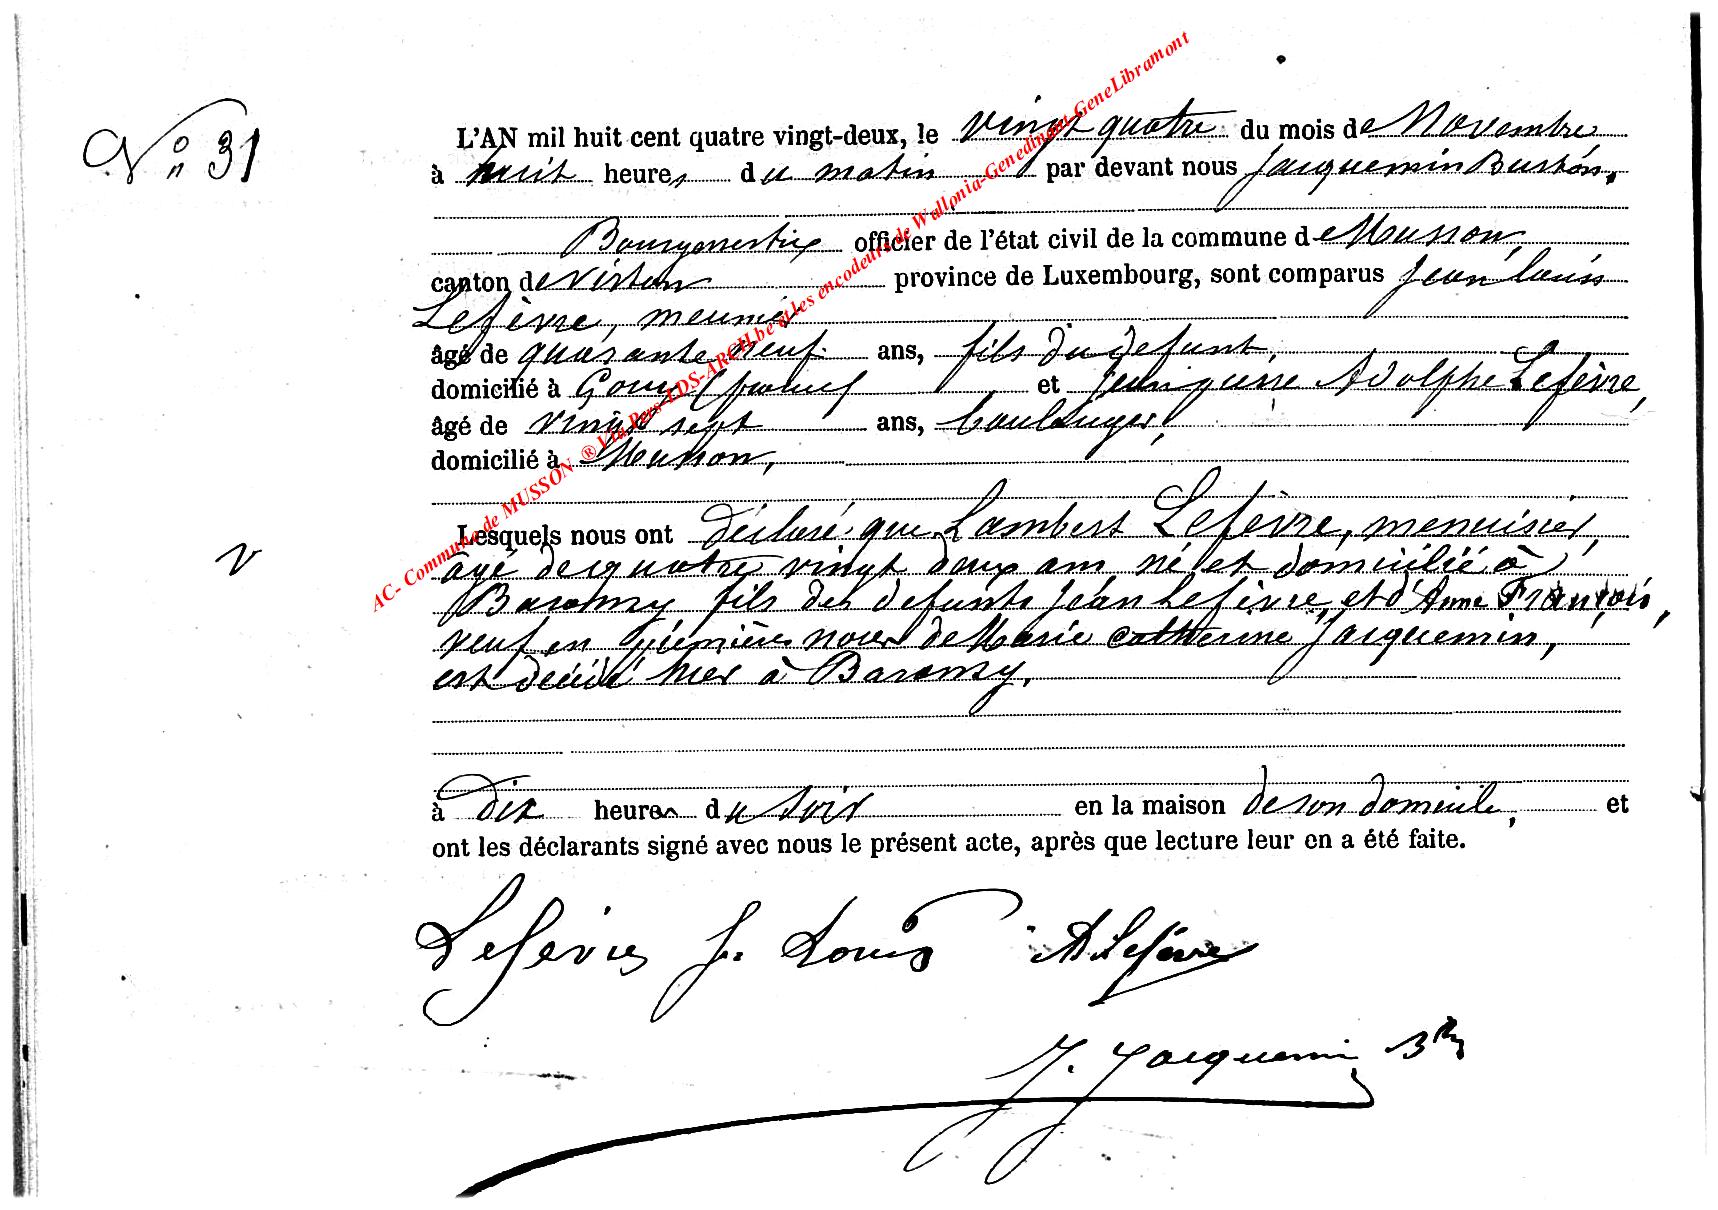 N° 31
L'AN mil huit cent quatre vingt-deux, le vingt quatre du mois de Novembre
à huit heures du matin par devant nous Jacquemin Burton,
Bourgmestre officier de l'état civil de la commune de Musson,
canton de Virton province de Luxembourg, sont comparus Jean Louis
Lefèvre, meunier
âgé de quarante neuf ans, fils du défunt,
domicilié à Gorcy (france) et Jean pierre Adolphe Lefèvre,
âgé de vingt sept ans, boulanger,
domicilié à Musson,
Lesquels nous ont déclaré que Lambert Lefèvre, menuisier,
âgé de quatre vingt deux ans né et domicilié à
Baranzy fils des défunts Jean Lefèvre et d'Anne François,
veuf en premières noces de Marie Catherine Jacquemin,
est décédé hier à Baranzy,
à dix heures du soir en la maison de son domicile, et
ont les déclarants signé avec nous le présent acte, après que lecture leur en a été faite.
Lefèvre J. Louis A Lefèvre
J. Jacquemin
AC- Commune de MUSSON ® Via Pers-LDS-ARCH.be et les encodeurs de Wallonia-Genedinant-GeneLibramont